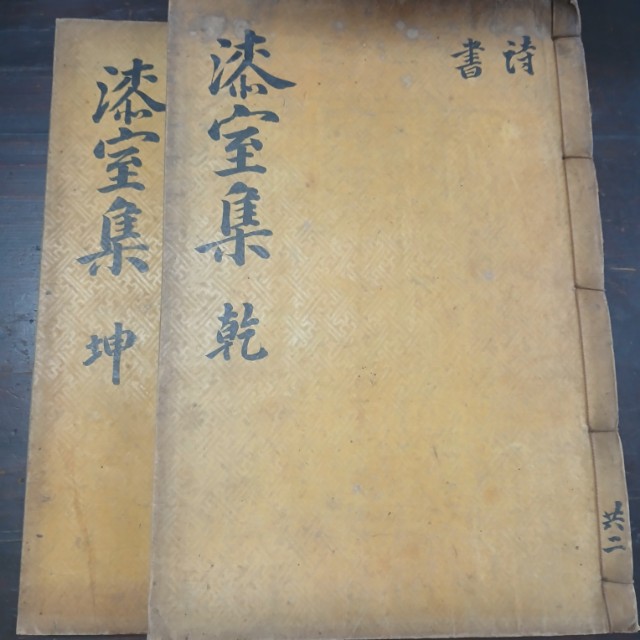 詩
書
漆室集 乾
共二
漆室集 坤